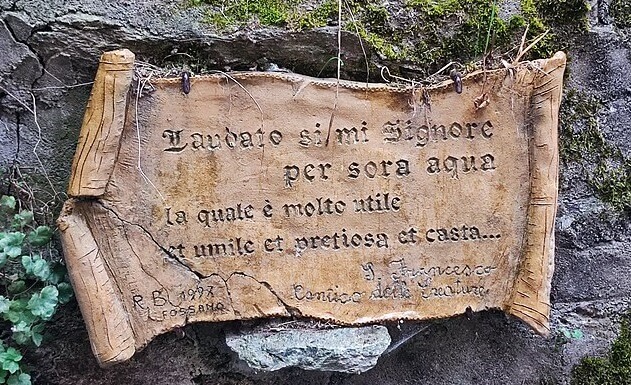 Laudato si mi Signore
per sora aqua
la quale è molto utile
et umile et pretiosa et casta...
S. Francesco
Cantico delle Creature
R B 1997
FOSSANO